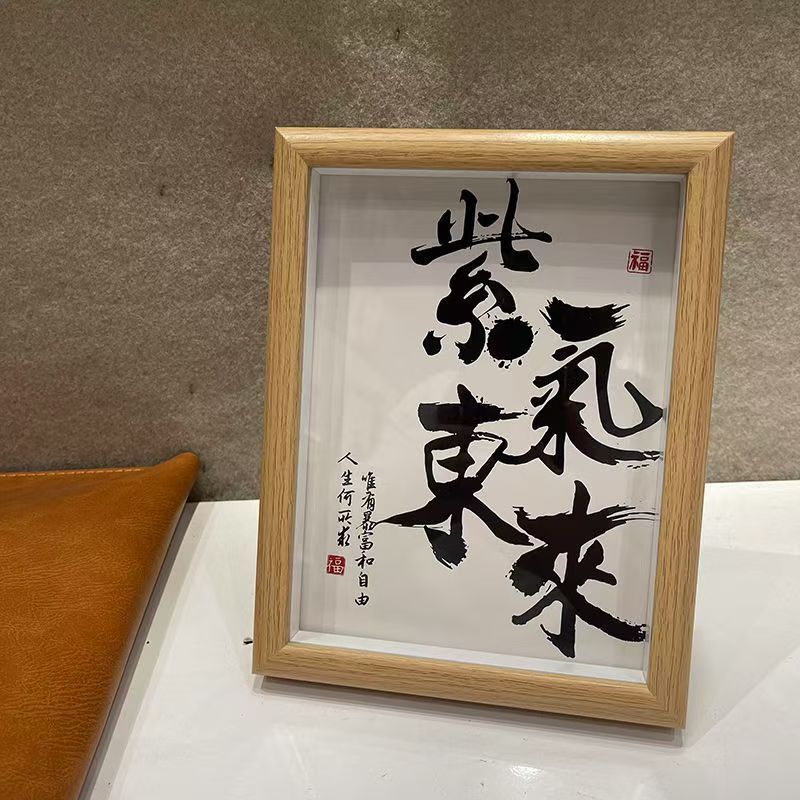 紫氣東來
福
人生何所求
唯有暴富和自由
福